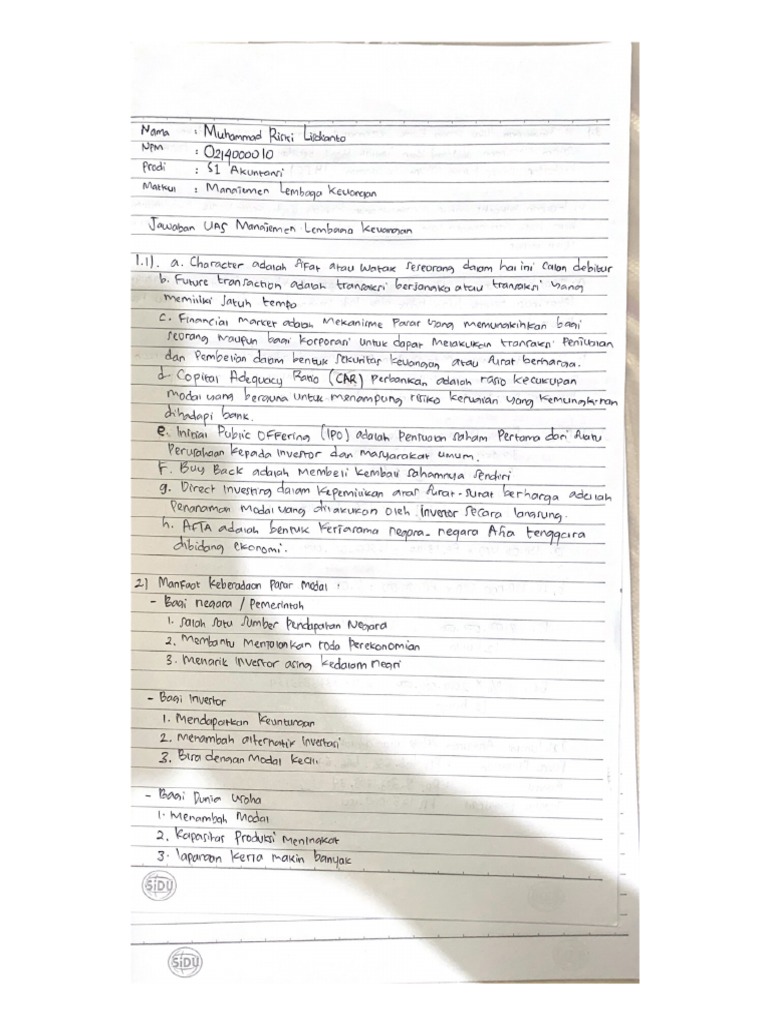 Nama : Muhammad Riski Lisdianto
NPM : 0214000010
Prodi : S1 Akuntansi
Matkul : Manajemen Lembaga Keuangan
Jawaban UAS Manajemen Lembaga Keuangan
1.1). a. Character adalah sifat atau watak seseorang dalam hal ini calon debitur
b. Future transaction adalah transaksi berjangka atau transaksi yang
memiliki jatuh tempo
c. Financial market adalah Mekanisme Pasar yang memungkinkan bagi
seorang maupun bagi korporasi untuk dapat Melakukan transaksi Penjualan
dan Pembelian dalam bentuk sekuritas keuangan atau surat berharga.
d. Capital Adequacy Ratio (CAR) Perbankan adalah rasio kecukupan
Modal yang berguna untuk menampung risiko kerugian yang kemungkinan
dihadapi bank.
e. Initial Public Offering (IPO) adalah Penjualan saham Pertama dari suatu
Perusahaan kepada investor dan masyarakat umum.
F. Buy Back adalah Membeli kembali sahamnya sendiri
g. Direct Investing dalam kepemilikan aras surat-surat berharga adalah
Penanaman Modal yang dilakukan oleh investor secara langsung.
h. AFTA adalah bentuk kerjasama negara-negara Asia tenggara
dibidang ekonomi.
2) Manfaat keberadaan Pasar Modal :
- Bagi negara / Pemerintah
1. salah satu sumber Pendapatan Negara
2. Membantu Menjalankan roda Perekonomian
3. Menarik investor asing kedalam negri
- Bagi investor
1. Mendapatkan keuntungan
2. Menambah alternatif investasi
3. Bisa dengan Modal kecil
- Bagi Dunia usaha
1. Menambah Modal
2. Kapasitas Produksi Meningkat
3. lapangan kerja makin banyak
SIDU
SIDU